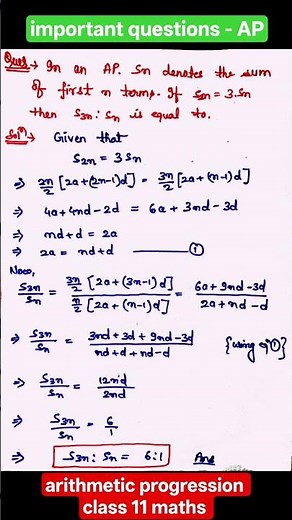 important questions - AP
Ques → In an AP. Sn denotes the sum
of first n terms. If S2n = 3.Sn
then S3n : Sn is equal to.
Solⁿ → Given that
S2n = 3 Sn
⇒ 2n/2 [2a+(2n-1)d] = 3n/2 [2a+(n-1)d]
⇒ 4a+4nd-2d = 6a+3nd-3d
⇒ nd+d = 2a
⇒ 2a = nd+d ——— ①
Now,
S3n/Sn = 3n/2 [2a+(3n-1)d] / n/2 [2a+(n-1)d] = 6a+9nd-3d / 2a+nd-d
⇒ S3n/Sn = 3nd+3d+9nd-3d / nd+d+nd-d {using eqⁿ ①}
⇒ S3n/Sn = 12nd/2nd
⇒ S3n/Sn = 6/1
⇒ S3n : Sn = 6:1 Ans
arithmetic progression
class 11 maths